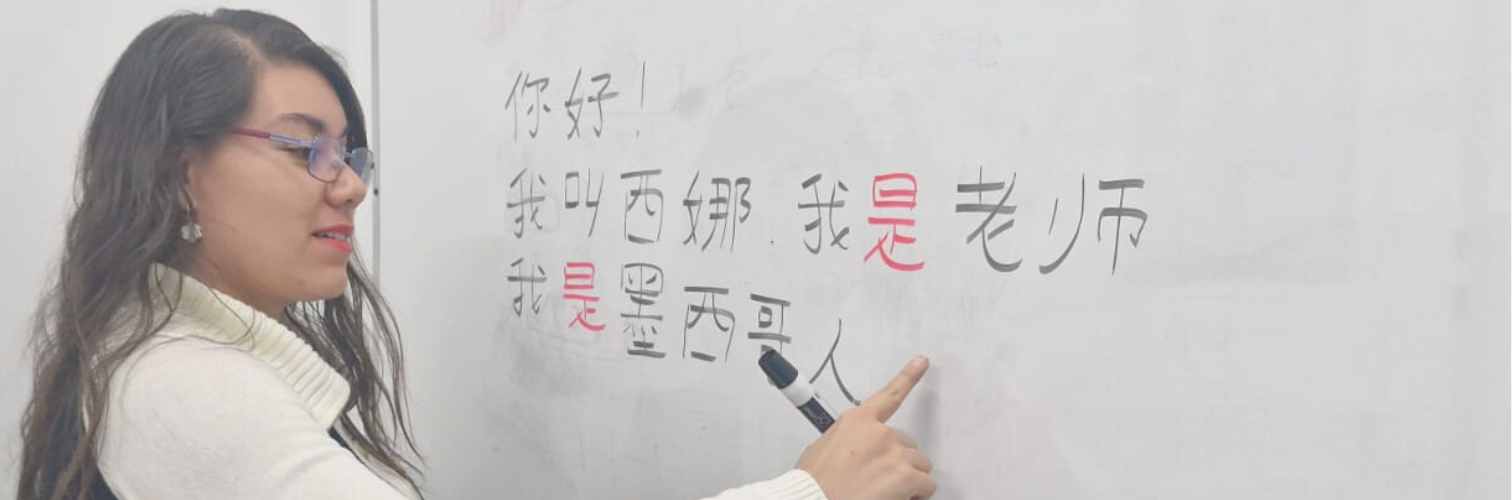 你好！
我叫西娜.我是老师
我是墨西哥人